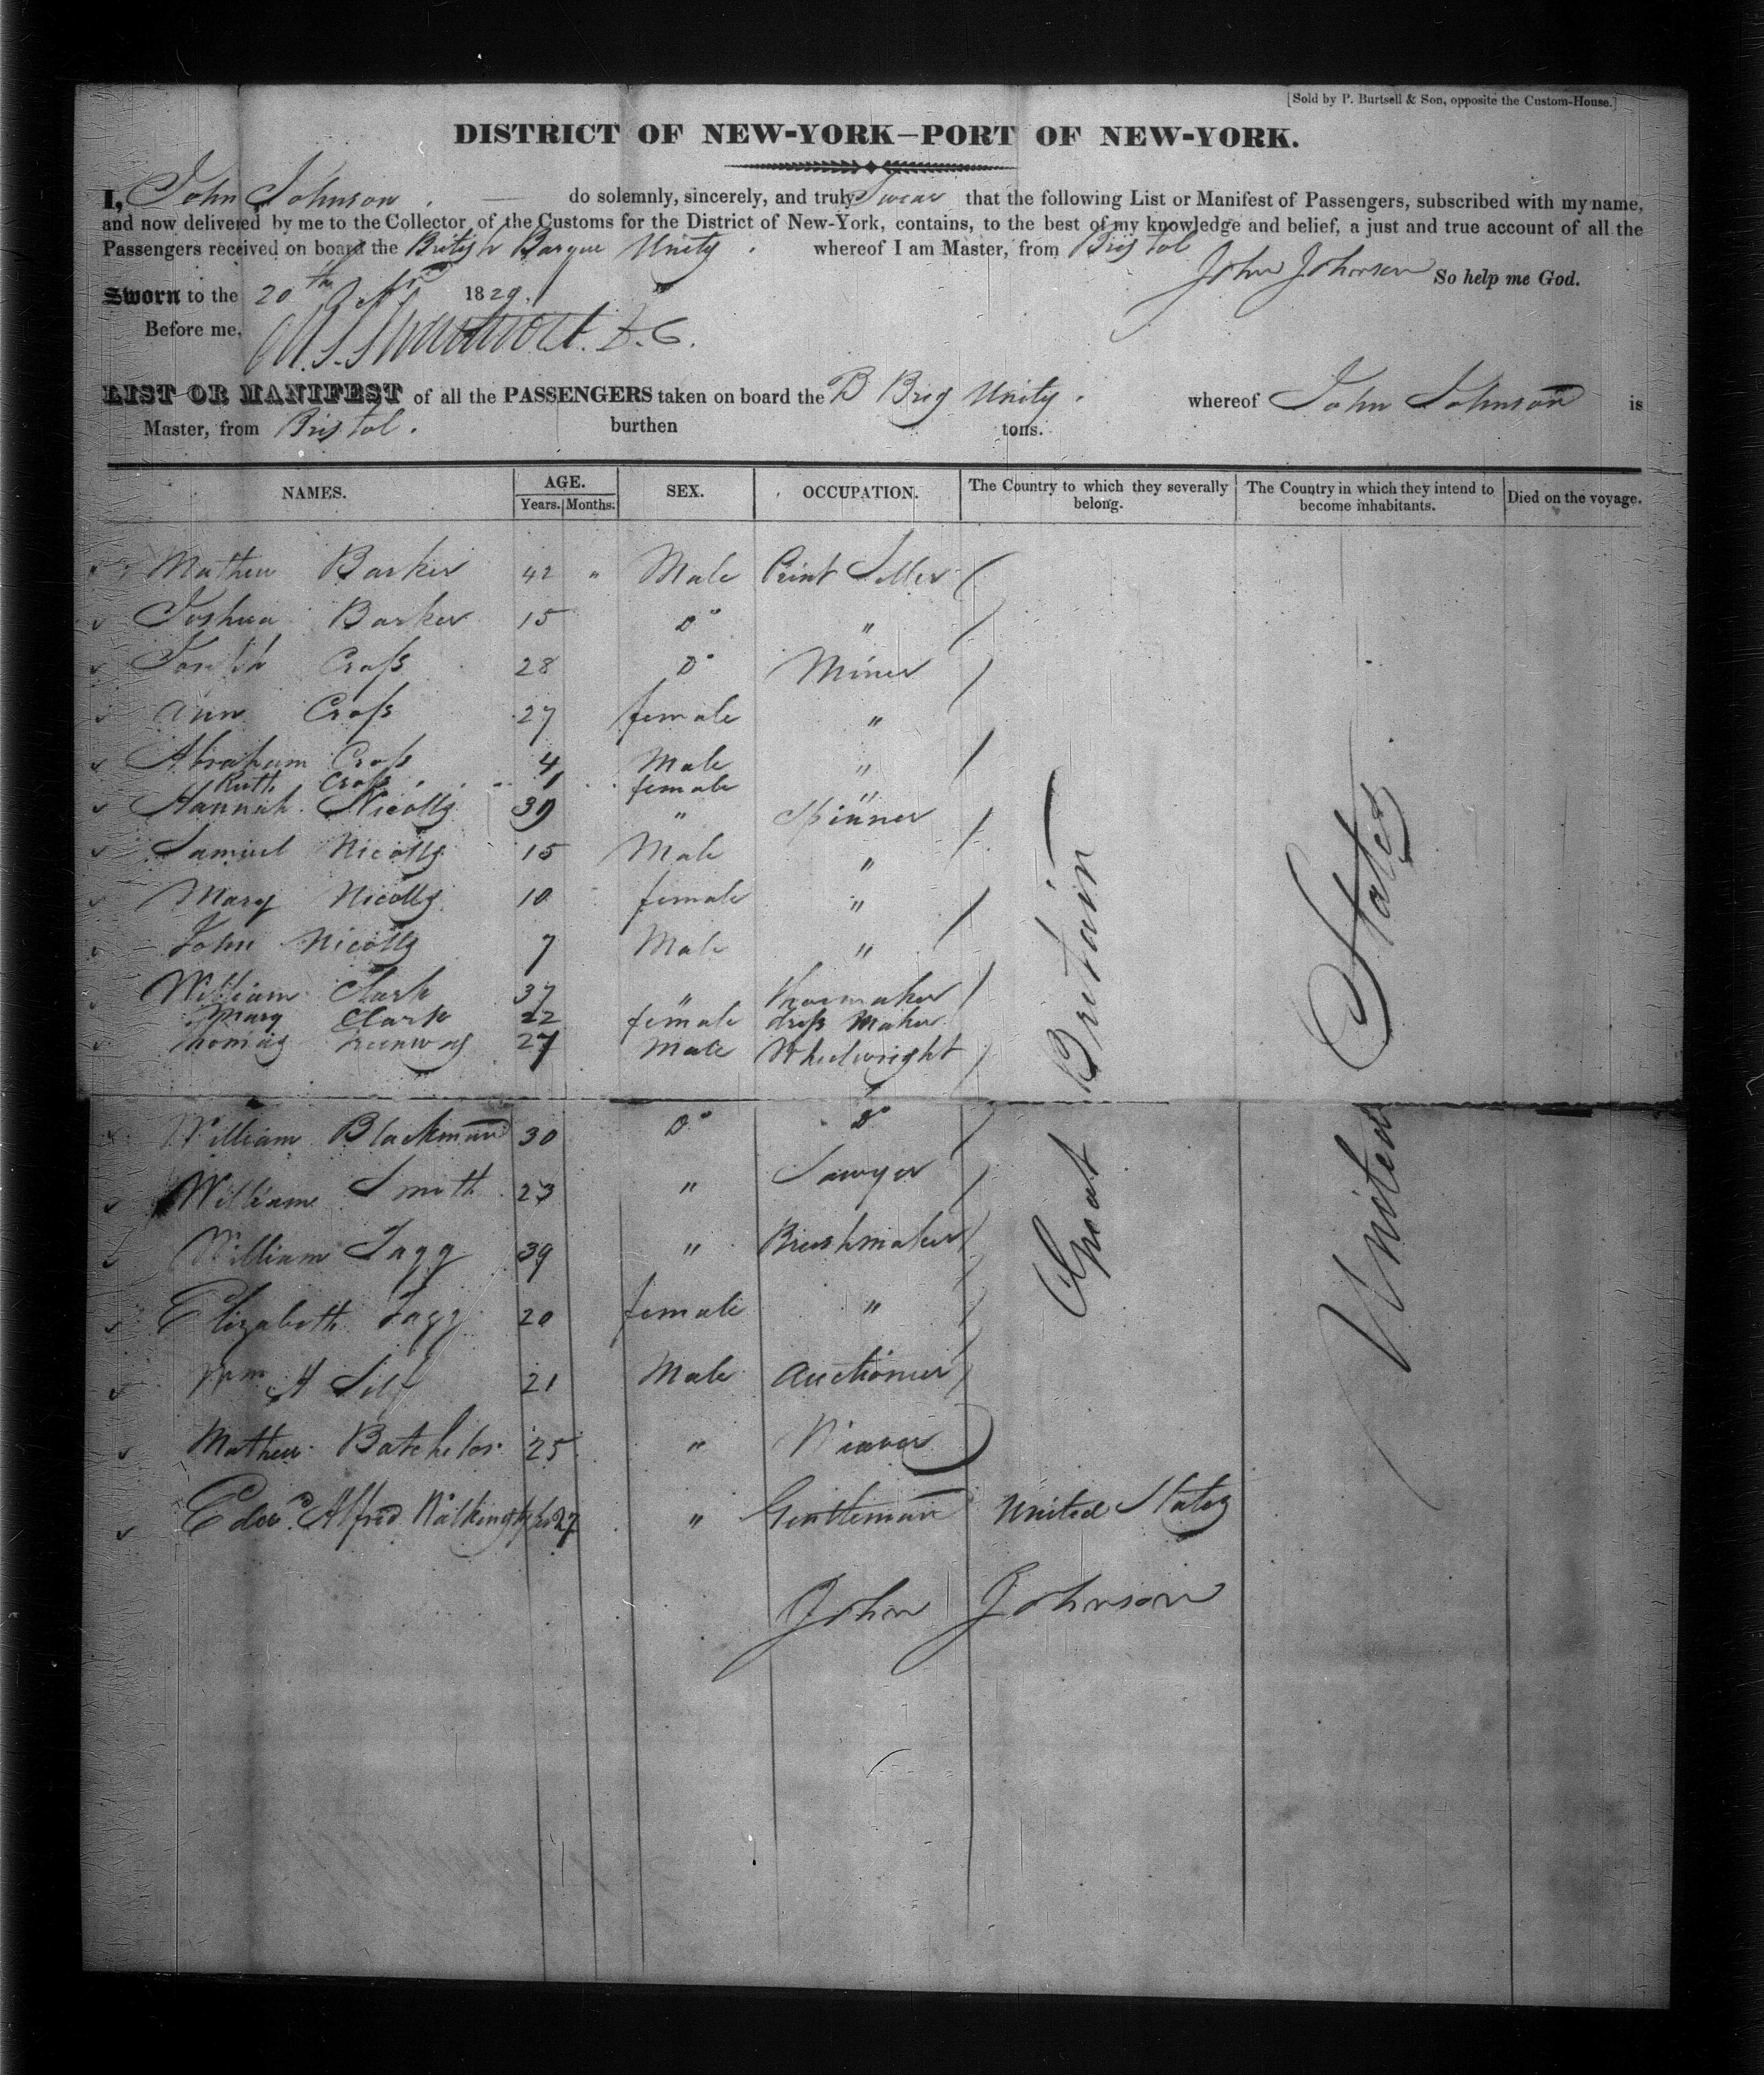 [Sold by P. Burtsell & Son, opposite the Custom-House.]
DISTRICT OF NEW-YORK—PORT OF NEW-YORK.
I, John Johnson do solemnly, sincerely, and truly Swear that the following List or Manifest of Passengers, subscribed with my name,
and now delivered by me to the Collector of the Customs for the District of New-York, contains, to the best of my knowledge and belief, a just and true account of all the
Passengers received on board the British Barque Unity. whereof I am Master, from Bristol
John Johnson So help me God.
Sworn to the 20th 1829.
Before me, D.C.
LIST OR MANIFEST of all the PASSENGERS taken on board the B Brig Unity. whereof John Johnson is
Master, from Bristol. burthen tons.
NAMES. AGE. Years. Months. SEX. OCCUPATION. The Country to which they severally belong. The Country in which they intend to become inhabitants. Died on the voyage.
Mathew Barker 42 " Male Print Seller
Joshua Barker 15 Do "
Joseph Croſs 28 Do Miner
Ann Croſs 27 female "
Abraham Croſs 4 Male "
Ruth Croſs 1 female "
Hannah Nicolls 39 " Spinner
Samuel Nicolls 15 Male "
Mary Nicolls 10 female "
John Nicolls 7 Male "
William Clark 37 " Shoemaker
Mary Clark 22 female dreſs Maker
Thomas Greenway 27 Male Wheelwright
William Blackman 30 Do Do
William Smith 23 " Sawyer
William Tagg 39 " Brushmaker
Elizabeth Tagg 20 female "
Wm A 21 Male Auctionier
Mathew Batchelor 25 " Weaver
Great Britain
United States
Edwd Alfred 27 " Gentleman United States
John Johnson